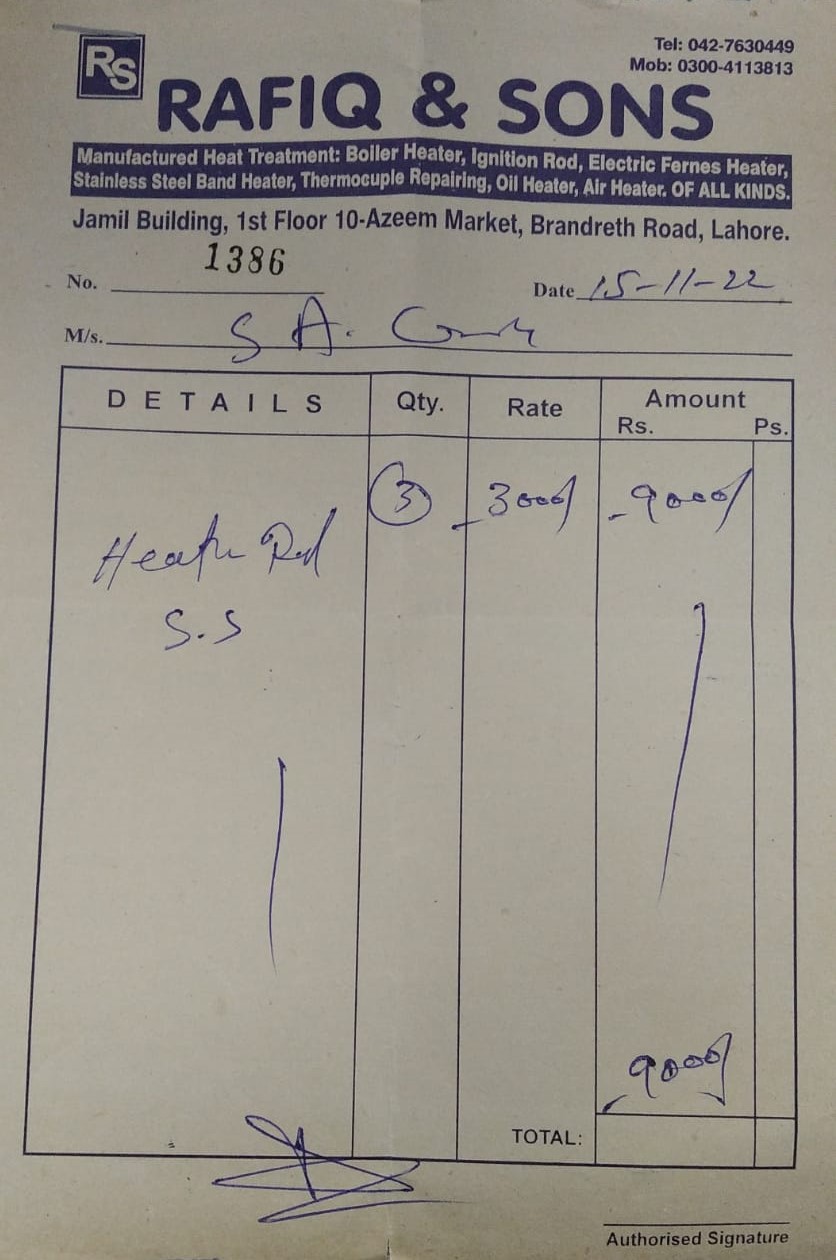 RS
Tel: 042-7630449
Mob: 0300-4113813
RAFIQ & SONS
Manufactured Heat Treatment: Boiler Heater, Ignition Rod, Electric Fernes Heater,
Stainless Steel Band Heater, Thermocuple Repairing, Oil Heater, Air Heater. OF ALL KINDS.
Jamil Building, 1st Floor 10-Azeem Market, Brandreth Road, Lahore.
No. 1386 Date 15-11-22
M/s. S A.
DETAILS Qty. Rate Amount
Rs. Ps.
3 3000/ 9000/
Heater Rod
S.S
9000/
TOTAL:
Authorised Signature